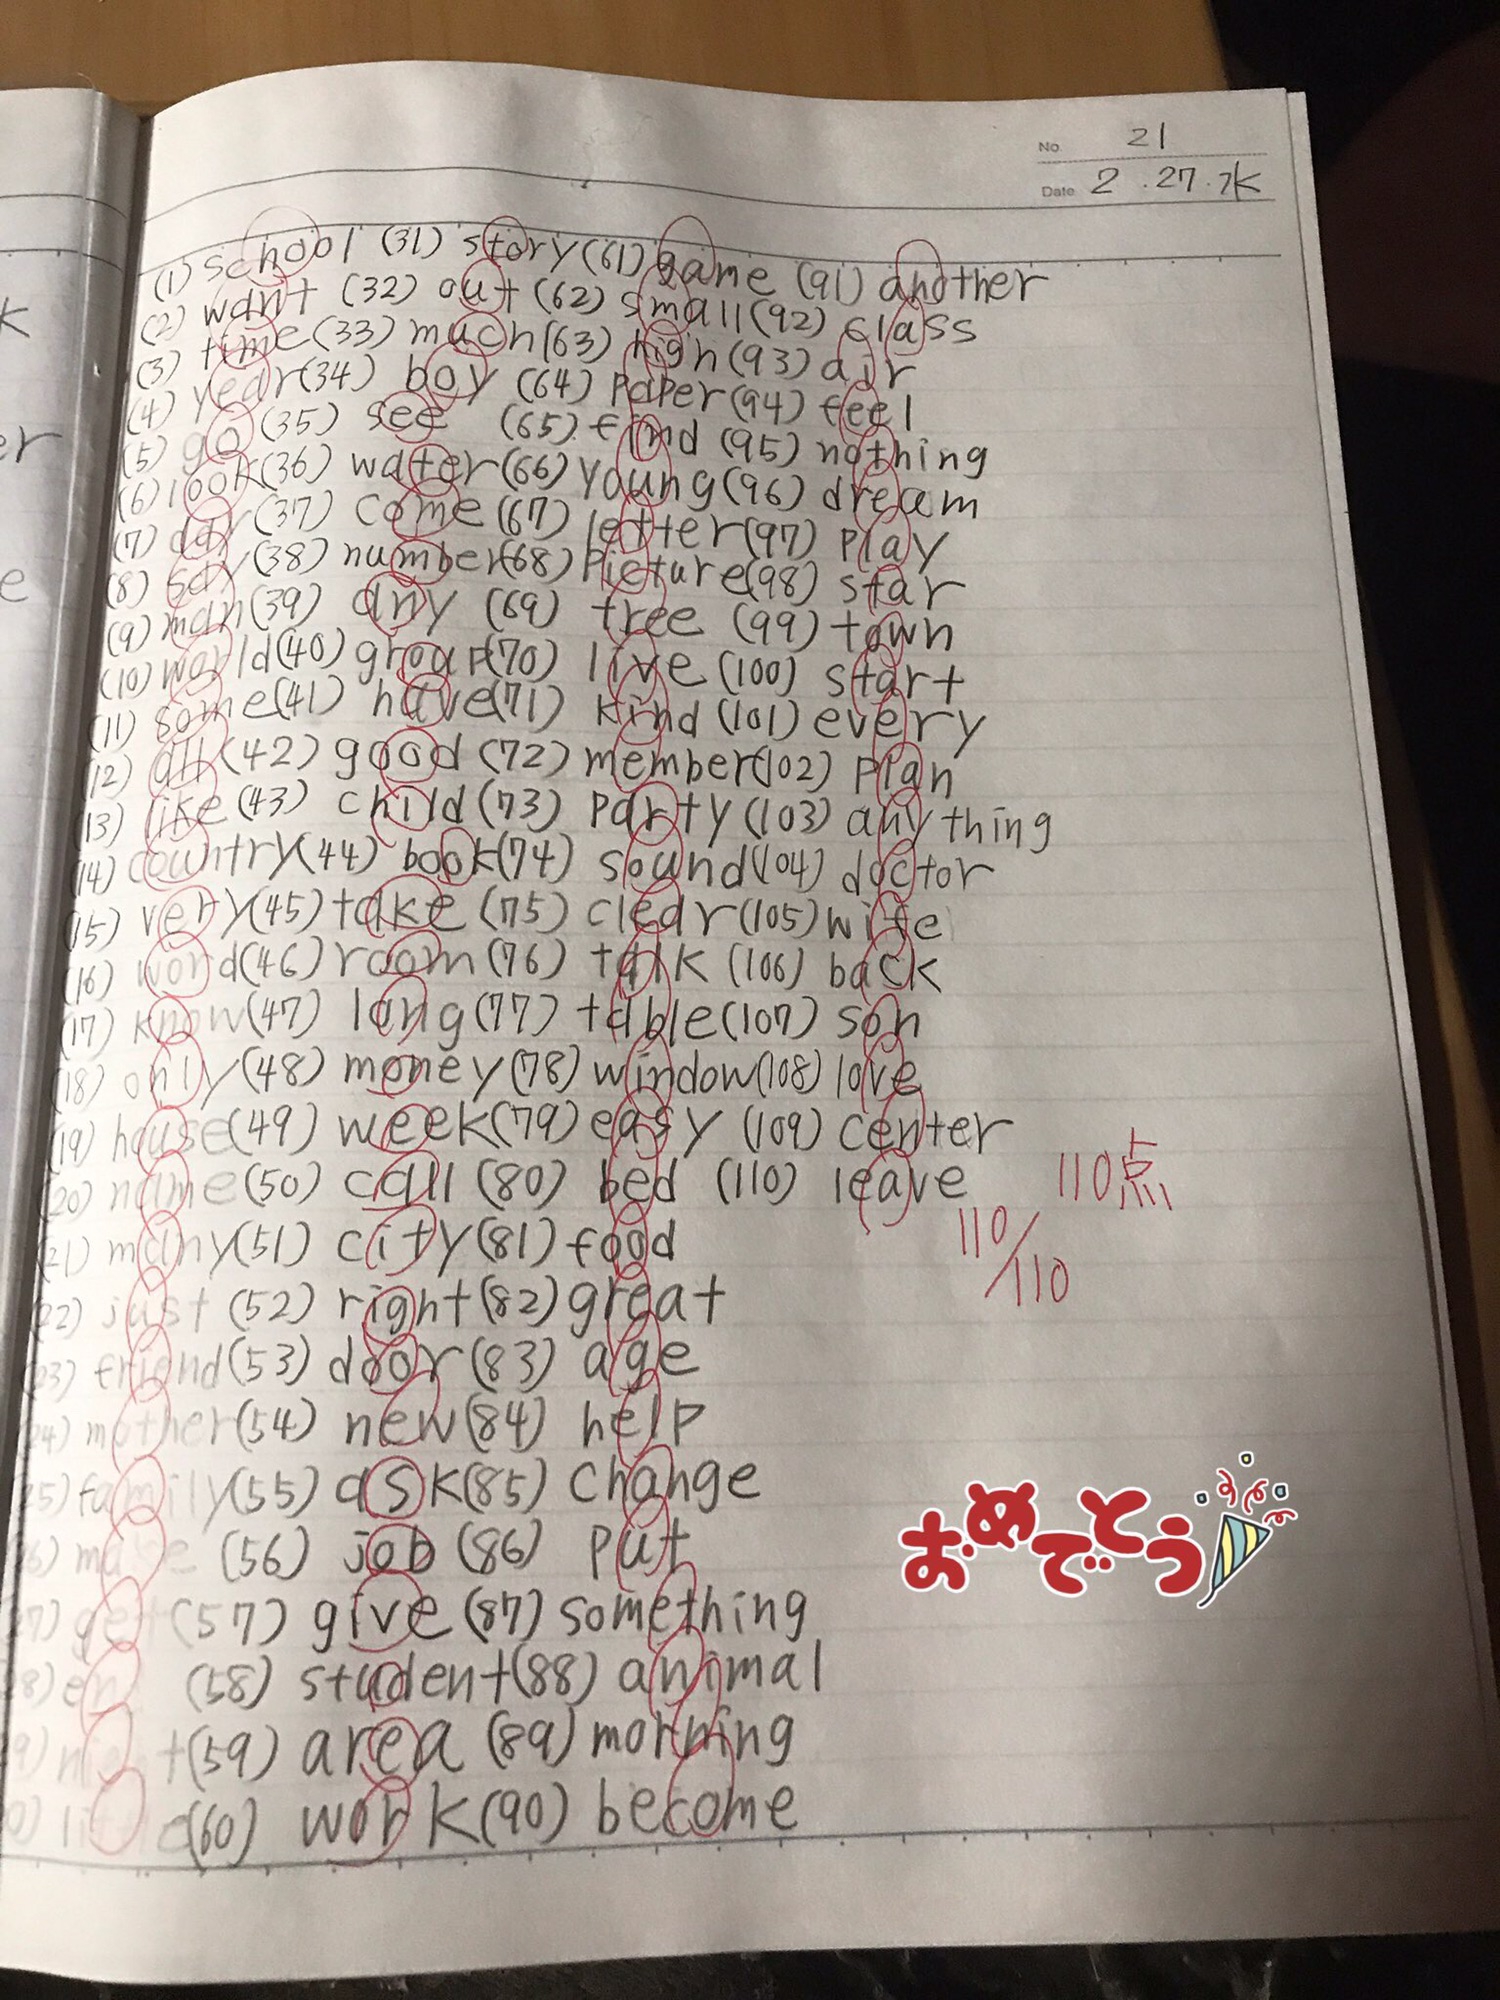 No. 21
Date 2 . 27 . 水
(1) school (31) story (61) game (91) another
(2) want (32) out (62) small (92) class
(3) time (33) much (63) high (93) air
(4) year (34) boy (64) paper (94) feel
(5) go (35) see (65) find (95) nothing
(6) look (36) water (66) young (96) dream
(7) day (37) come (67) letter (97) play
(8) say (38) number (68) picture (98) star
(9) man (39) any (69) tree (99) town
(10) world (40) group (70) live (100) start
(11) some (41) have (71) kind (101) every
(12) all (42) good (72) member (102) plan
(13) like (43) child (73) party (103) anything
(14) country (44) book (74) sound (104) doctor
(15) very (45) take (75) clear (105) wife
(16) word (46) room (76) talk (106) back
(17) know (47) long (77) table (107) son
(18) only (48) money (78) window (108) love
(19) house (49) week (79) easy (109) center
(20) name (50) call (80) bed (110) leave 110点
21) many (51) city (81) food 110/110
22) just (52) right (82) great
23) friend (53) door (83) age
24) mother (54) new (84) help
25) family (55) ask (85) change
6) make (56) job (86) put
7) get (57) give (87) something
28) (58) student (88) animal
9) (59) area (89) morning
0) (60) work (90) become
おめでとう
k
er
e